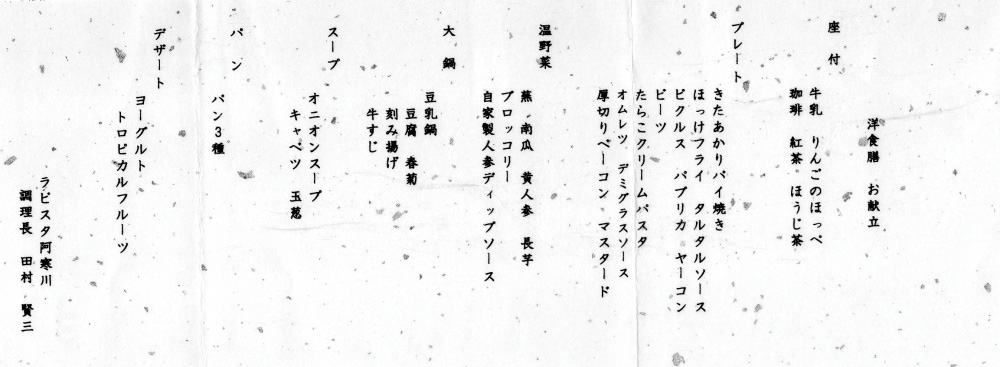 洋食膳　お献立
座　付
牛乳　りんごのほっぺ
珈琲　紅茶　ほうじ茶
プレート
きたあかりパイ焼き
ほっけフライ　タルタルソース
ピクルス　パプリカ　ヤーコン
ビーツ
たらこクリームパスタ
オムレツ　デミグラスソース
厚切りベーコン　マスタード
温野菜
蕪　南瓜　黄人参　長芋
ブロッコリー
自家製人参ディップソース
大　鍋
豆乳鍋
豆腐　春菊
刻み揚げ
牛すじ
スープ
オニオンスープ
キャベツ　玉葱
パ　ン
パン３種
デザート
ヨーグルト
トロピカルフルーツ
ラビスタ阿寒川
調理長　田村　賢三